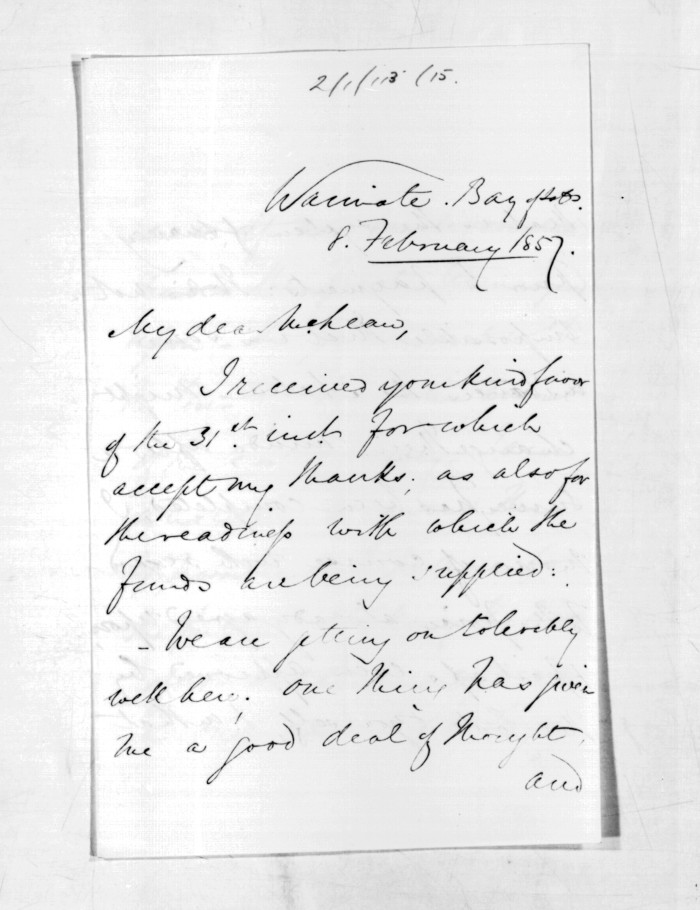 2/1/113 /15.
Waimate. Bay of Isds.
8. February 1857.
My dear McLean,
I received your kind favor
of the 31st inst for which
accept my thanks, as also for
the readiness with which the
funds are being supplied:
- We are getting on tolerably
well here; one thing has given
me a good deal of thought,
and